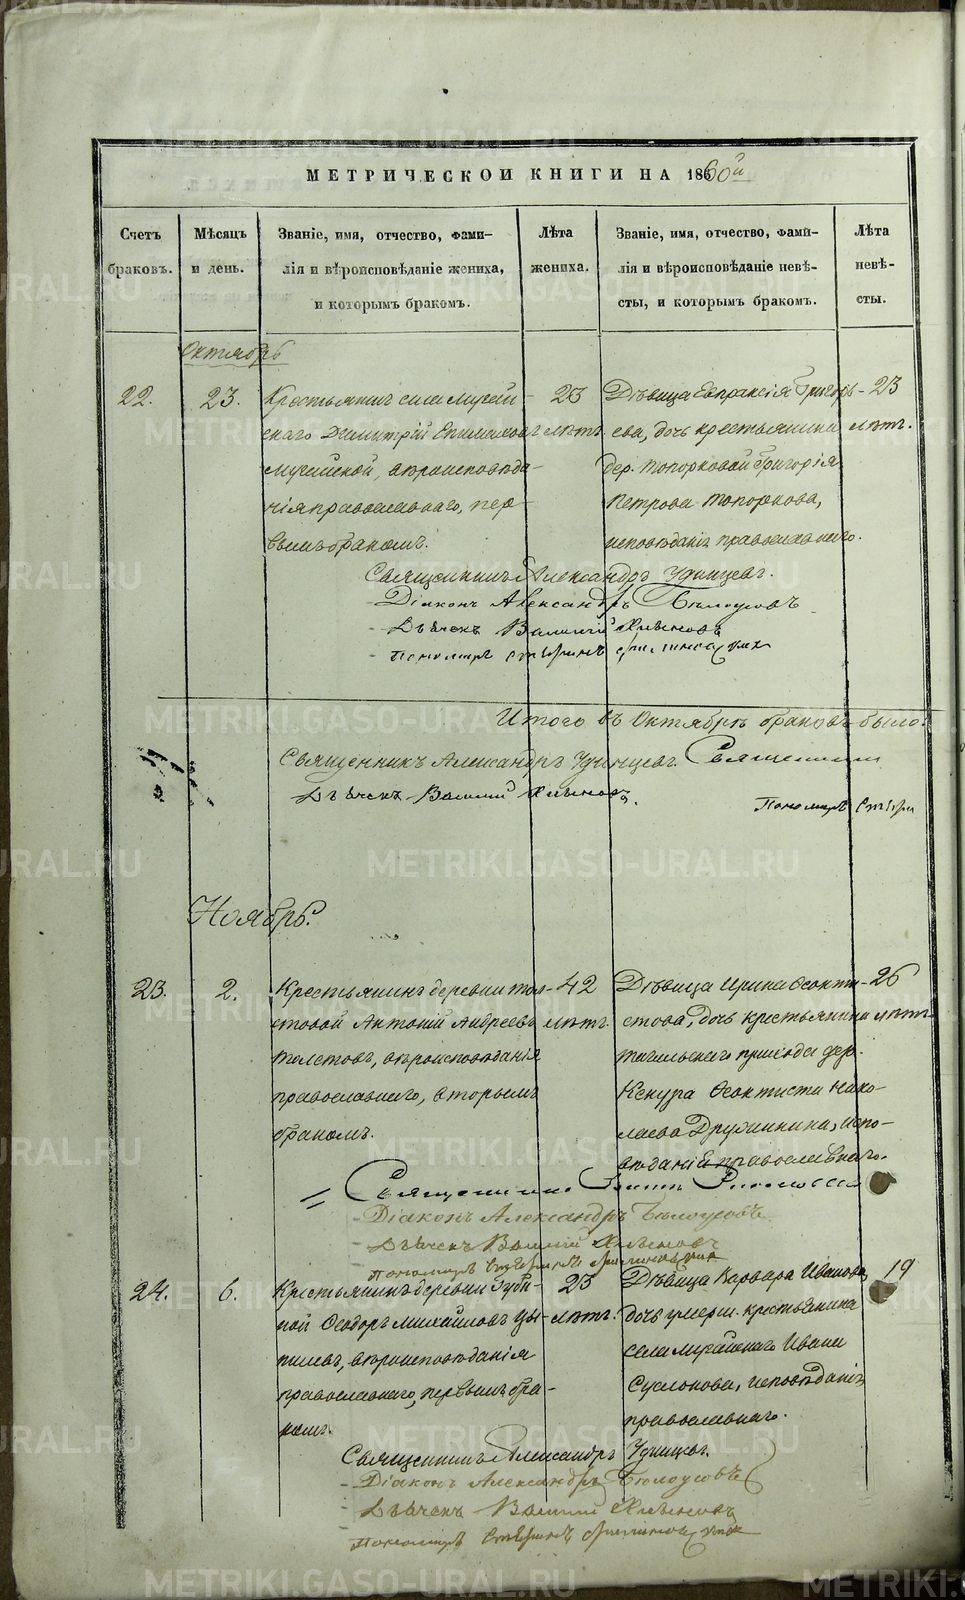 МЕТРИЧЕСКОЙ КНИГИ НА 1860й
Счетъ браковъ.
Мѣсяцъ и день.
Званіе, имя, отчество, фами-
лія и вѣроисповѣданіе жениха,
и которымъ бракомъ.
Лѣта жениха.
Званіе, имя, отчество, фами-
лія и вѣроисповѣданіе невѣ-
сты, и которымъ бракомъ.
Лѣта невѣ-
сты.
Октябрь
22.
23.
Крестьянинъ села Мурзин-
скаго Димитрій Епимаховъ
вѣроисповѣда-
нія православнаго, пер-
вымъ бракомъ.
23
лѣтъ.
Дѣвица Евпраксія Григорь-
ева, дочь крестьянина
дер. Топорковой Григорія
Петрова Топоркова,
исповѣданія православнаго.
23
лѣтъ.
Священникъ Александръ Удинцевъ.
Діаконъ Александръ Бѣлоусовъ
Дьячекъ Василий Хлыновъ
Пономарь
Итого въ Октябрѣ браковъ было
Священникъ Александръ Удинцевъ. Священникъ
Дьячекъ Василий Хлыновъ.
Пономарь
Ноябрь.
23.
2.
Крестьянинъ деревни Тол-
стовой Антоній Андреевъ
Толстовъ, вѣроисповѣданія
православнаго, вторымъ
бракомъ.
42
лѣтъ.
Дѣвица Ирина Ѳеокти-
стова, дочь крестьянина
Тагильскаго прихода дер.
Кекура Ѳеоктиста Нико-
лаева Дружинина, испо-
вѣданія православнаго.
26
лѣтъ.
Священникъ
Діаконъ Александръ Бѣлоусовъ
Дьячекъ Василий Хлыновъ
Пономарь
24.
6.
Крестьянинъ деревни
Ѳеодоръ Михайловъ
вѣроисповѣданія
православнаго, первымъ бра-
комъ.
23
лѣтъ.
Дѣвица Варвара Иванова,
дочь умерш. крестьянина
села Мурзинскаго Ивана
Суслонова, исповѣданія
православнаго.
19
Священникъ Александръ Удинцевъ.
Діаконъ Александръ Бѣлоусовъ
Дьячекъ Василий Хлыновъ
Пономарь
METRIKI.GASO-URAL.RU